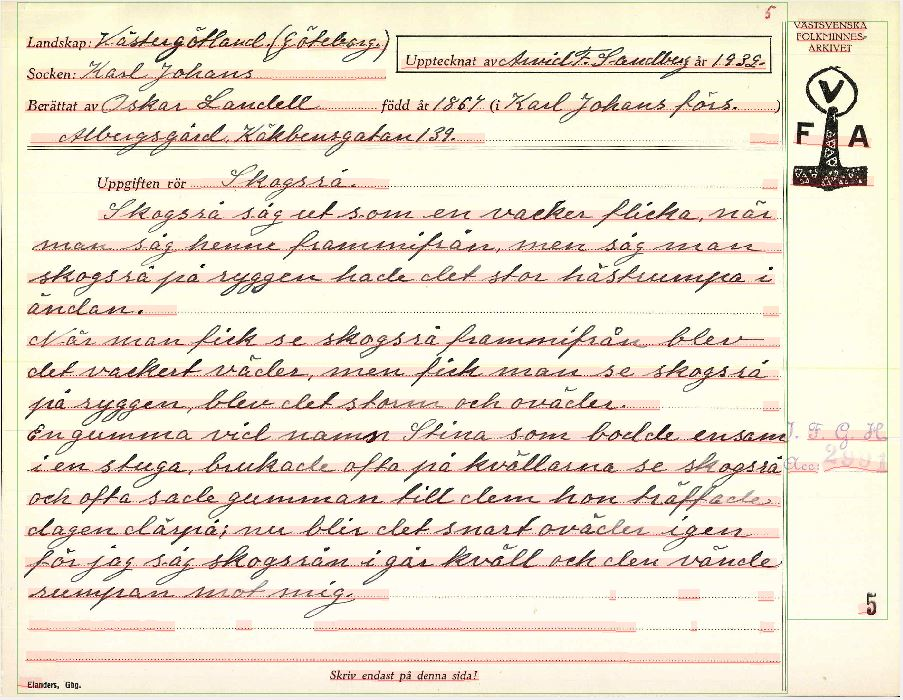 5
Landskap: Västergötland. (Göteborg.)
Upptecknat av Arvid F. Sandberg år 1939.
Socken: Karl Johans
Berättat av Oskar Landell född år 1867 (i Karl Johans förs. )
Albergsgård, Kåkbensgatan 139.
VÄSTSVENSKA
FOLKMINNES-
ARKIVET
V
F A
Uppgiften rör Skogsrå.
Skogsrå såg ut som en vacker flicka, när
man såg henne frammifrån, men såg man
skogsrå på ryggen hade det stor hästrumpa i
ändan.
När man fick se skogsrå frammifrån blev
det vackert väder, men fick man se skogsrå
på ryggen, blev det storm och oväder.
En gumma vid namn Stina som bodde ensam
i en stuga, brukade ofta på kvällarna se skogsrå
och ofta sade gumman till dem hon träffade
dagen därpå; nu blir det snart oväder igen
för jag såg skogsrån i går kväll och den vände
rumpan mot mig.
I. F. G. H
Acc: 2891
5
Skriv endast på denna sida!
Elanders, Gbg.